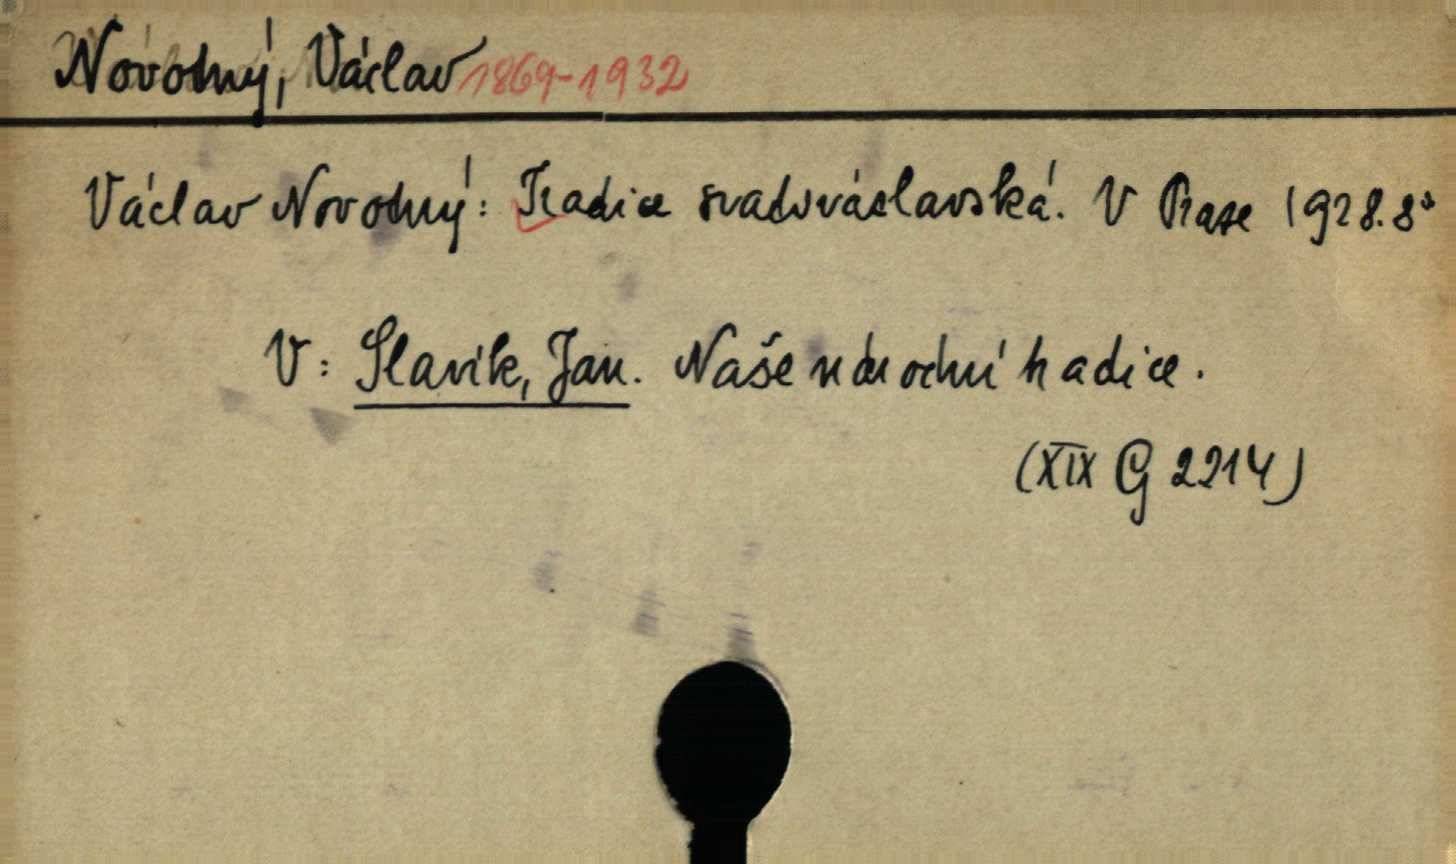 Novotný, Václav 1869-1932
Václav Novotný: Tradice svatováclavská. V Praze 1928. 8°
V: Slavík, Jan. Naše národní tradice.
(XIX G 2214)